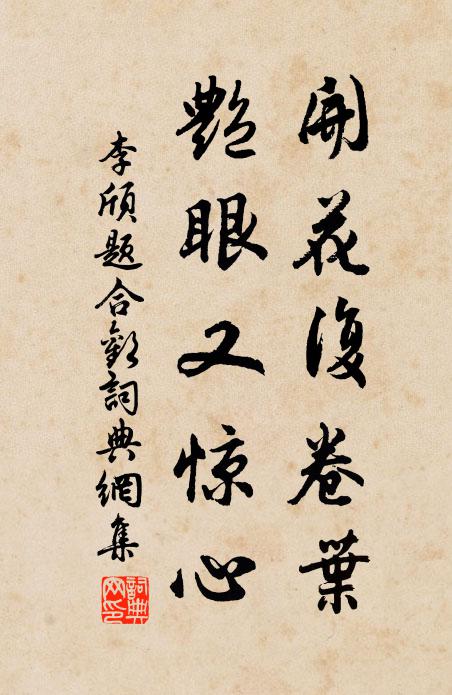 開花復卷葉
艷眼又惊心
李頎題合歡詞典網集
詞典网印